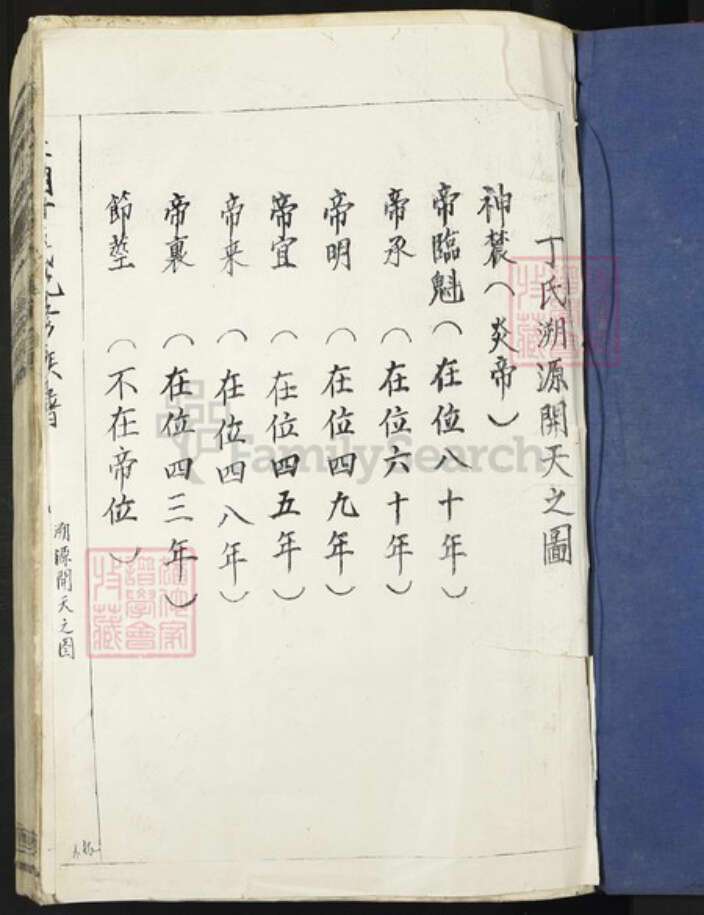 丁氏溯源開天之圖
神農(炎帝)
帝臨魁(在位八十年)
帝承(在位六十年)
帝明(在位四九年)
帝宜(在位四五年)
帝来(在位四八年)
帝裏(在位四三年)
節莖(不在帝位)
溯源開天之图
FamilySearch